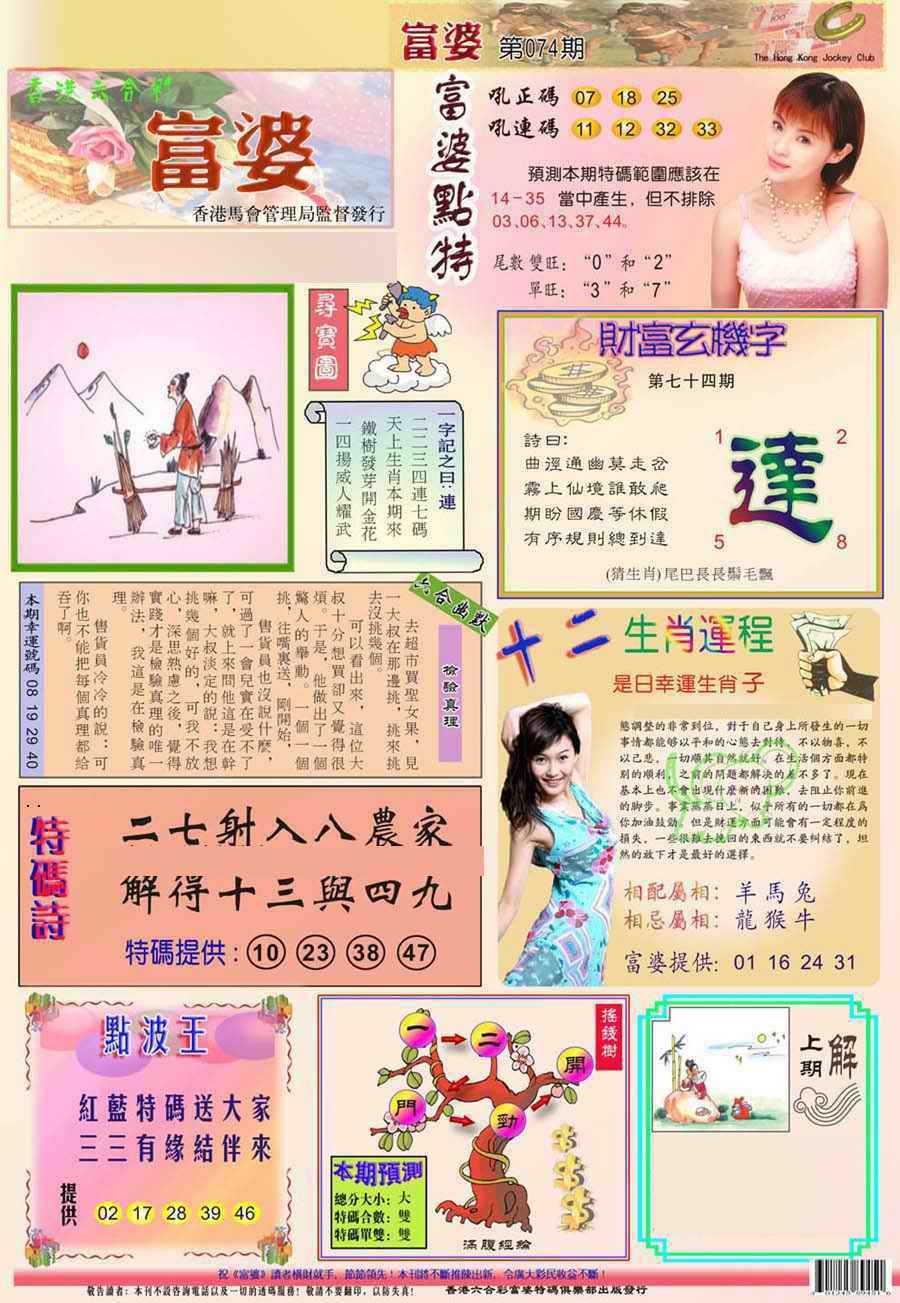 富婆 第074期
The Hong Kong Jockey Club
香港六合彩
富婆
香港馬會管理局監督發行
富婆點特
吼正碼 07 18 25
吼連碼 11 12 32 33
預測本期特碼範圍應該在
14－35 當中產生，但不排除
03、06、13、37、44。
尾數雙旺：“0”和“2”
單旺：“3”和“7”
尋寶圖
一字記之曰：連
二二三四連七碼
天上生肖本期來
鐵樹發芽開金花
一四揚威人耀武
財富玄機字
第七十四期
詩曰：
曲徑通幽莫走岔
霧上仙境誰敢爬
期盼國慶等休假
有序規則總到達
達
1 2
5 8
(猜生肖)尾巴長長鬃毛飄
六合幽默
檢驗真理
去超市買聖女果，見
一大叔在那邊挑，挑來挑
去沒挑幾個。
可以看出來，這位大
叔十分想買卻又覺得很
煩。于是，他做出了一個
驚人的舉動。一個一個
挑，往嘴裏送，剛開始，
售貨員也沒說什麼，
可過了一會兒實在受不了
了，就上來問他這是在幹
嘛，大叔淡定的說：我想
挑幾個好的，可我不放
心，深思熟慮之後，覺得
實踐才是檢驗真理的唯一
辦法，我這是在檢驗真
理。
售貨員冷冷的說：可
你也不能把每個真理都給
吞了啊。
本期幸運號碼 08 19 29 40
十二生肖運程
是日幸運生肖子
態調整的非常到位，對于自己身上所發生的一切
事情都能够以平和的心態去對待，不以物喜，不
以己悲，一切順其自然就好。在生活個方面都特
別的順利，之前的問題都解決的差不多了。現在
基本上也不會出現什麽新的困難，去阻止你前進
的脚步。事業蒸蒸日上，似乎所有的一切都在爲
你加油鼓勁，但是財運方面可能會有一定程度的
損失，一些很難去挽回的東西就不要糾結了，坦
然的放下才是最好的選擇。
相配屬相：羊馬兔
相忌屬相：龍猴牛
富婆提供：01 16 24 31
特碼詩
二七射入八農家
解得十三與四九
特碼提供：10 23 38 47
點波王
紅藍特碼送大家
三三有緣結伴來
提供 02 17 28 39 46
搖錢樹
一 二 開
門 勁
本期預測
總分大小：大
特碼合數：雙
特碼單雙：雙
滿腹經綸
上期解
祝《富婆》讀者橫財就手，節節領先！本刊將不斷推陳出新，令廣大彩民收益不斷！
敬告讀者：本刊不設咨詢電話以及一切的透碼服務！敬請不要翻印，以防失真！ 香港六合彩富婆特碼俱樂部出版發行